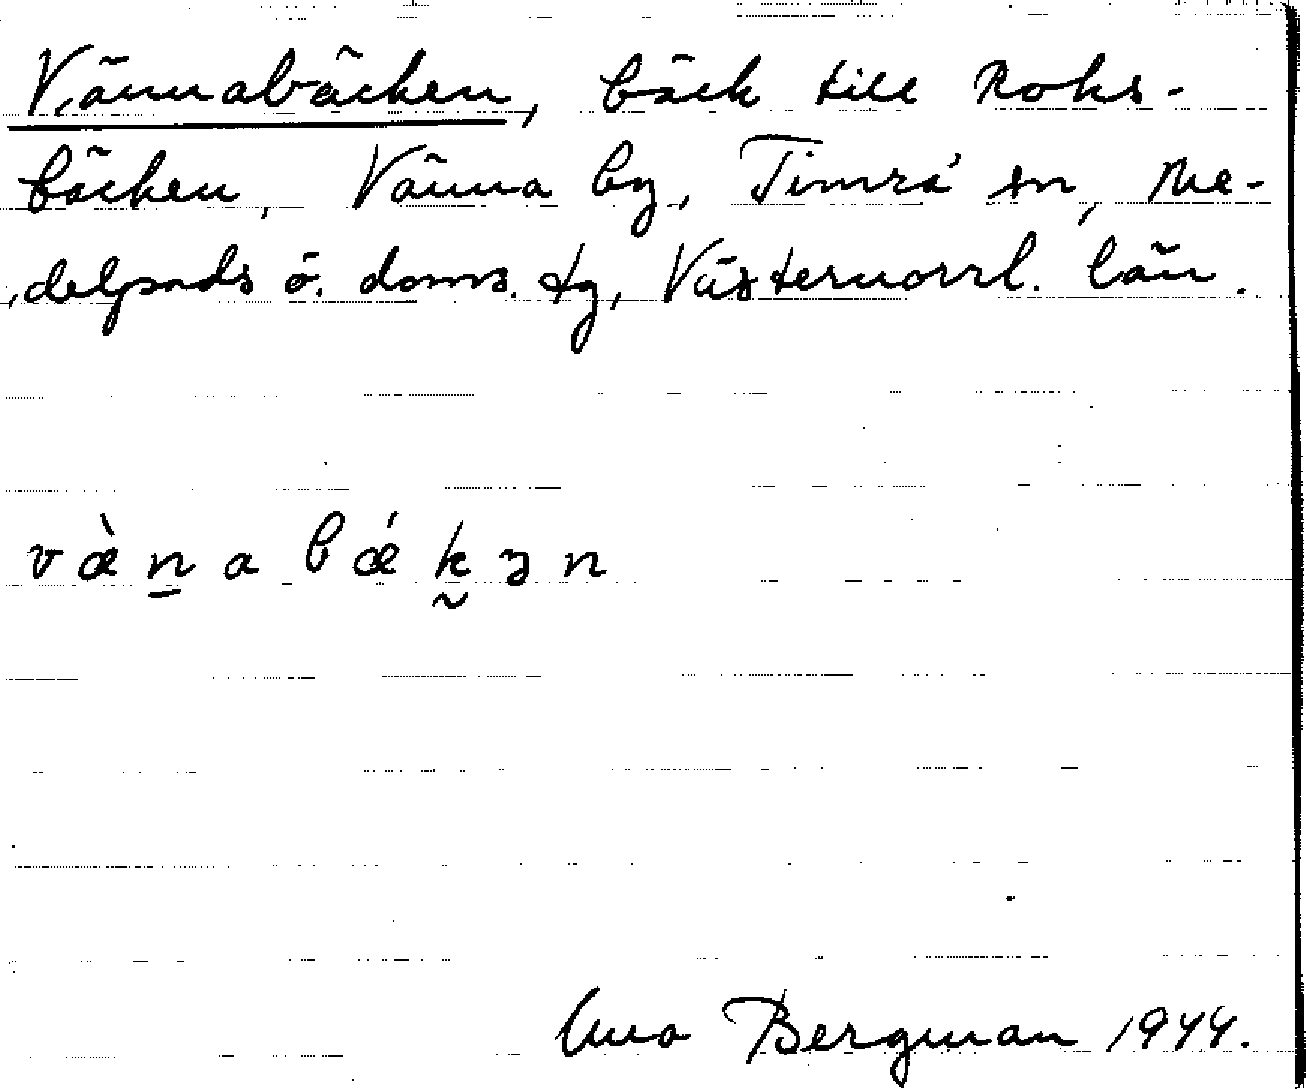 Vännabäcken, bäck till Roks-
bäcken, Vänna by, Timrå sn, Me-
delpads ö. doms. tg, Västernorrl. län.
væ̀n̠abǽk̰ɜn
Bergman 1944.